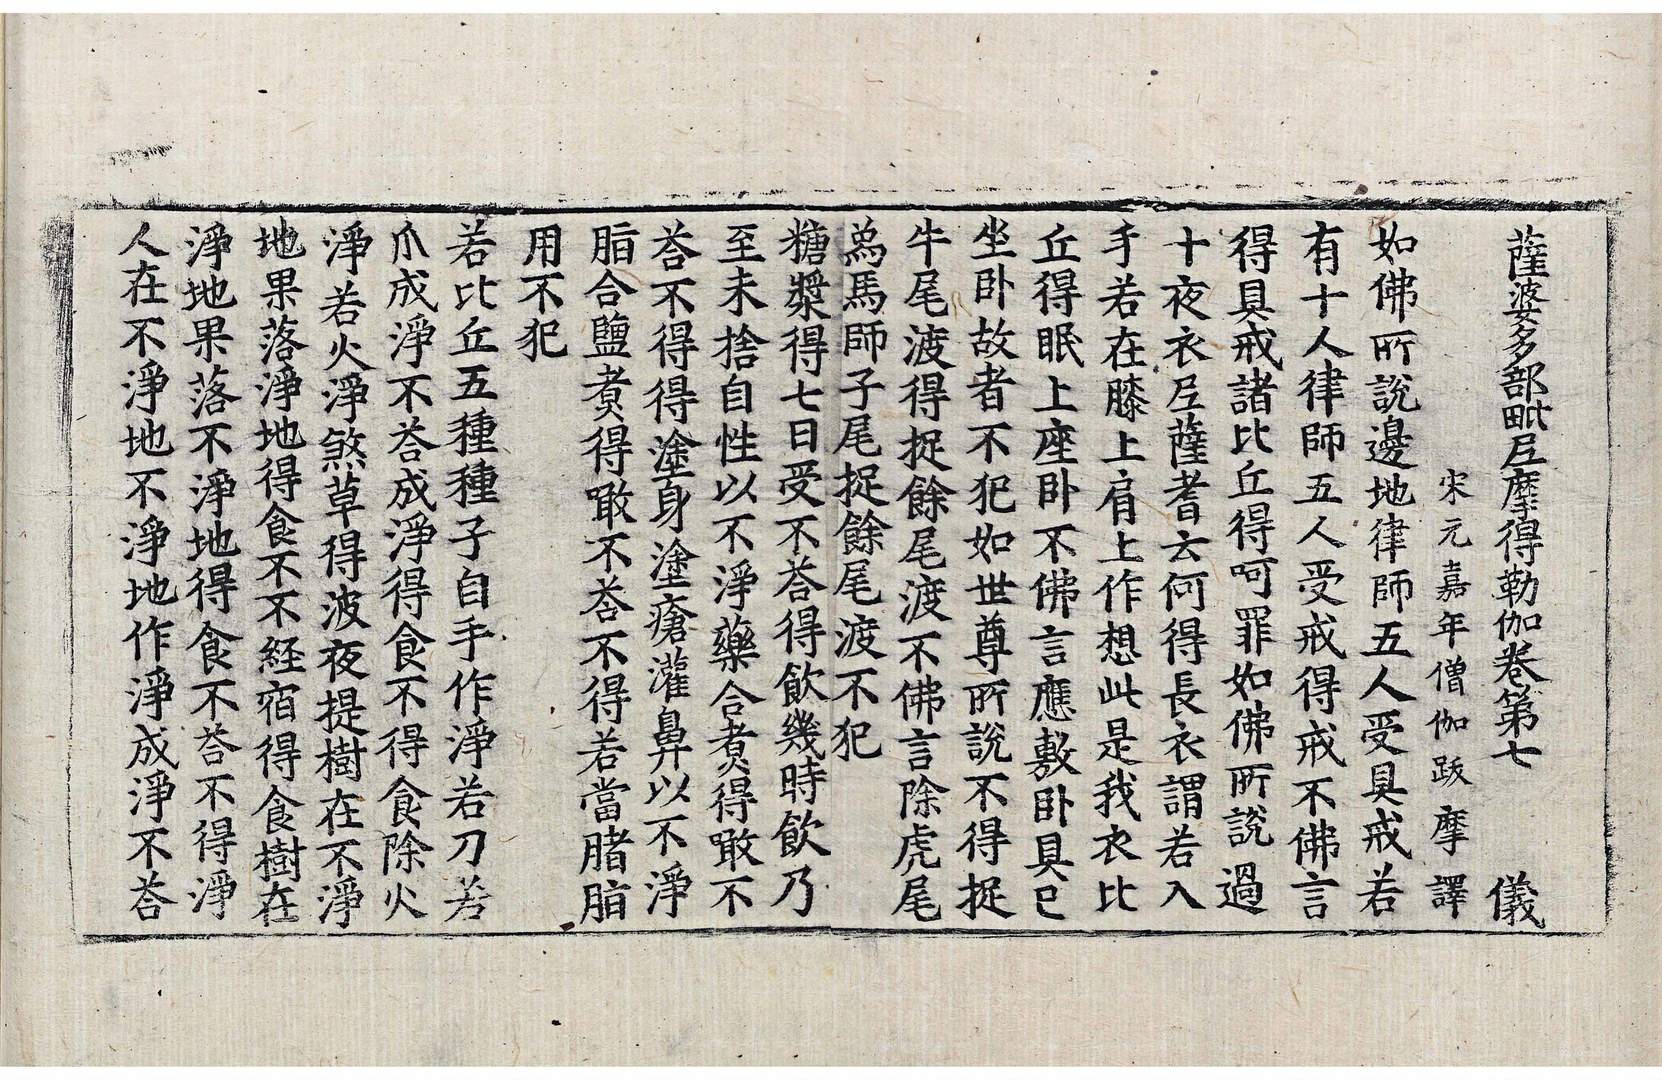 薩婆多部毗尼摩得勒伽卷第七 儀
宋元嘉年僧伽跋摩 譯
如佛所說邊地律師五人受具戒若
有十人律師五人受戒得戒不佛言
得具戒諸比丘得呵罪如佛所說過
十夜衣尼薩耆云何得長衣謂若入
手若在膝上肩上作想此是我衣比
丘得眠上座卧不佛言應敷卧具已
坐卧故者不犯如世尊所說不得捉
牛尾渡得捉餘尾渡不佛言除虎尾
為馬師子尾捉餘尾渡不犯
糖漿得七日受不荅得飲幾時飲乃
至未捨自性以不淨藥合煮得噉不
荅不得得塗身塗瘡灌鼻以不淨
脂合鹽煮得噉不荅不得若當豬脂
用不犯
若比丘五種種子自手作淨若刀若
爪成淨不荅成淨得食不得食除火
淨若火淨煞草得波夜提樹在不淨
地果落淨地得食不不経宿得食樹在
淨地果落不淨地得食不荅不得淨
人在不淨地不淨地作淨成淨不荅